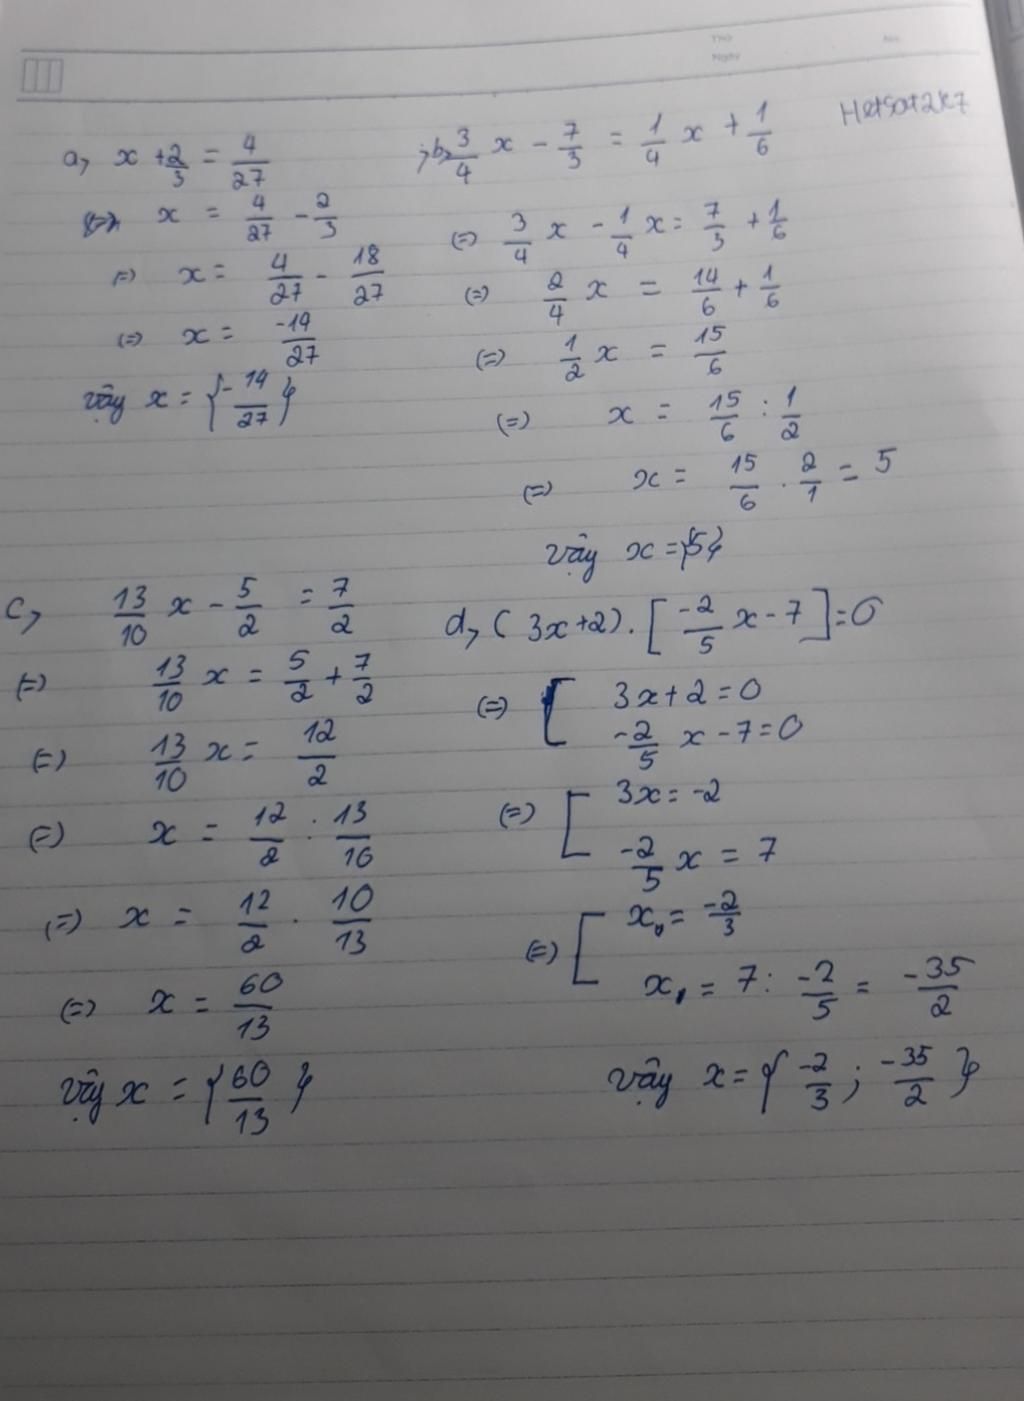 Thứ
Ngày
No.
Hetsoat2k7
a, x + 2/3 = 4/27
<=> x = 4/27 - 2/3
(=) x = 4/27 - 18/27
(=) x = -14/27
vậy x = {-14/27}
b, 3/4 x - 7/3 = 1/4 x + 1/6
(=) 3/4 x - 1/4 x = 7/3 + 1/6
(=) 2/4 x = 14/6 + 1/6
(=) 1/2 x = 15/6
(=) x = 15/6 : 1/2
(=) x = 15/6 . 2/1 = 5
vậy x = {5}
c, 13/10 x - 5/2 = 7/2
(=) 13/10 x = 5/2 + 7/2
(=) 13/10 x = 12/2
(=) x = 12/2 : 13/10
(=) x = 12/2 . 10/13
(=) x = 60/13
vậy x = {60/13}
d, (3x+2) . [-2/5 x - 7] = 0
(=) [ 3x + 2 = 0
-2/5 x - 7 = 0
(=) [ 3x = -2
-2/5 x = 7
(=) [ x = -2/3
x = 7 : -2/5 = -35/2
vậy x = {-2/3 ; -35/2}